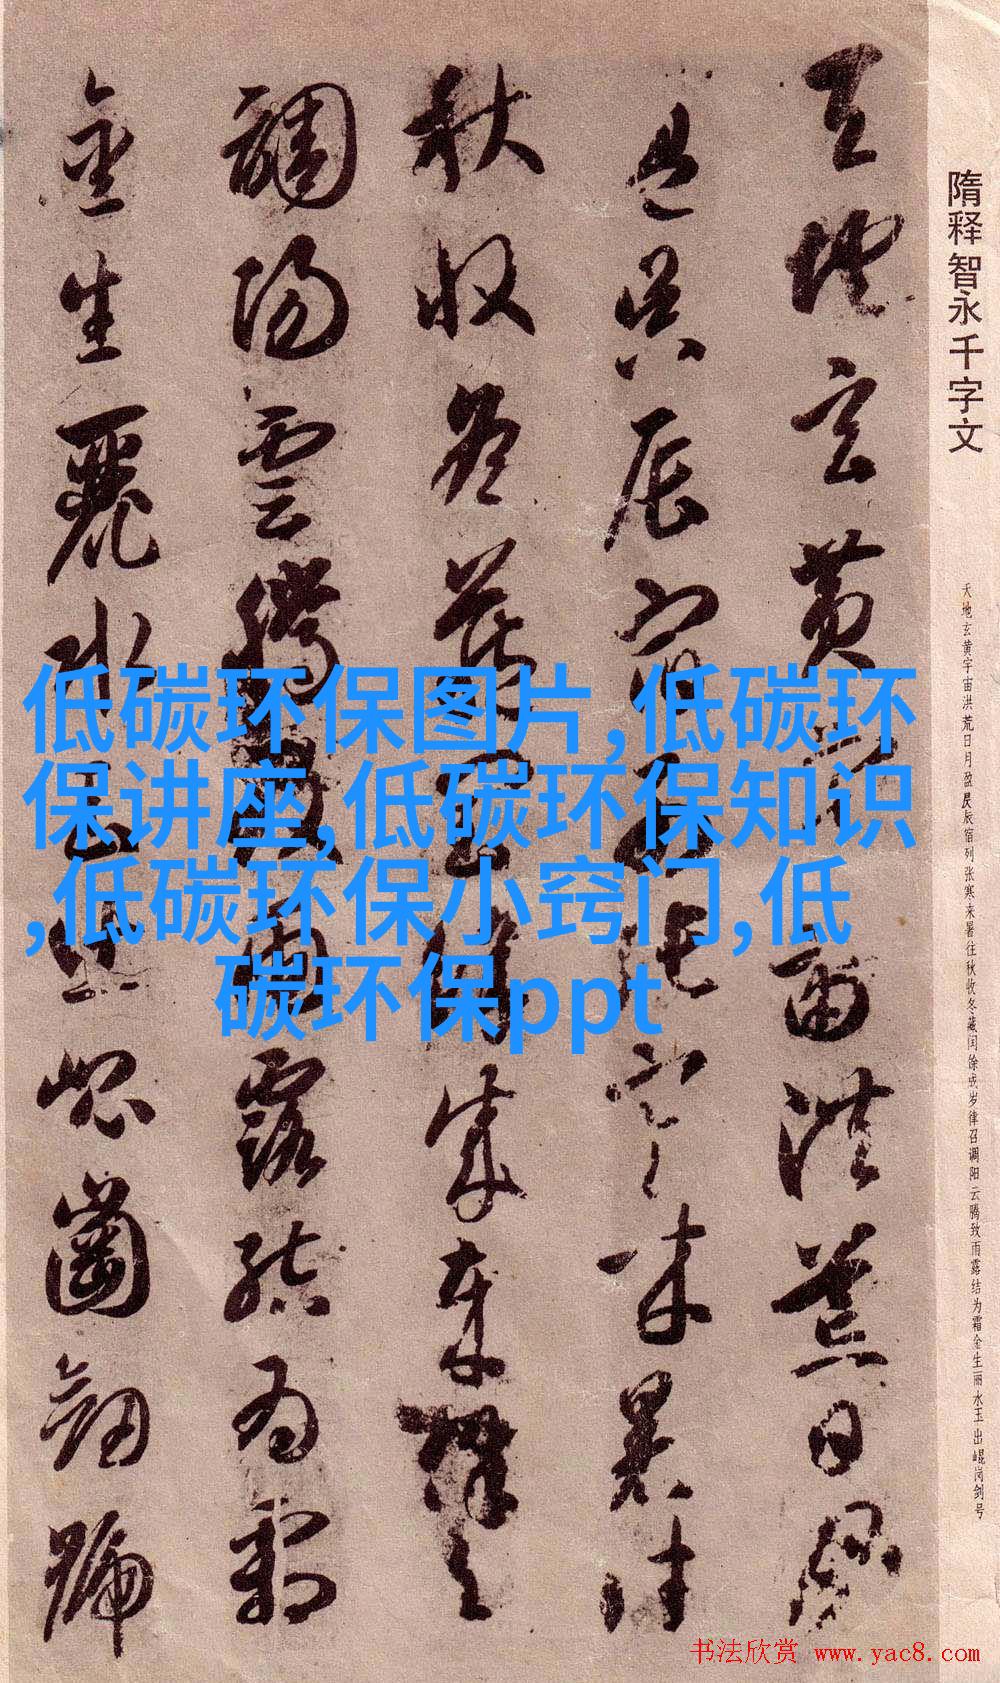 隋释智永千字文
天地玄黄宇宙洪荒日月盈昃辰宿列张寒来暑往秋收冬藏闰馀成岁律召调阳云腾致雨露结为霜金生丽水玉出崐岗剑号
天地玄黄宇宙洪荒日月
盈昃辰宿列張寒来暑往
秋收冬藏閏餘成歲律召
調陽雲騰致雨露結為霜
金生麗水玉出崐崗劒號
低碳环保图片,低碳环
保讲座,低碳环保知识
,低碳环保小窍门,低
碳环保ppt
书法欣赏 www.yac8.com